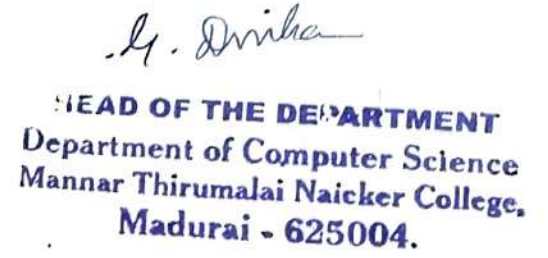 HEAD OF THE DEPARTMENT
Department of Computer Science
Mannar Thirumalai Naicker College,
Madurai - 625004.